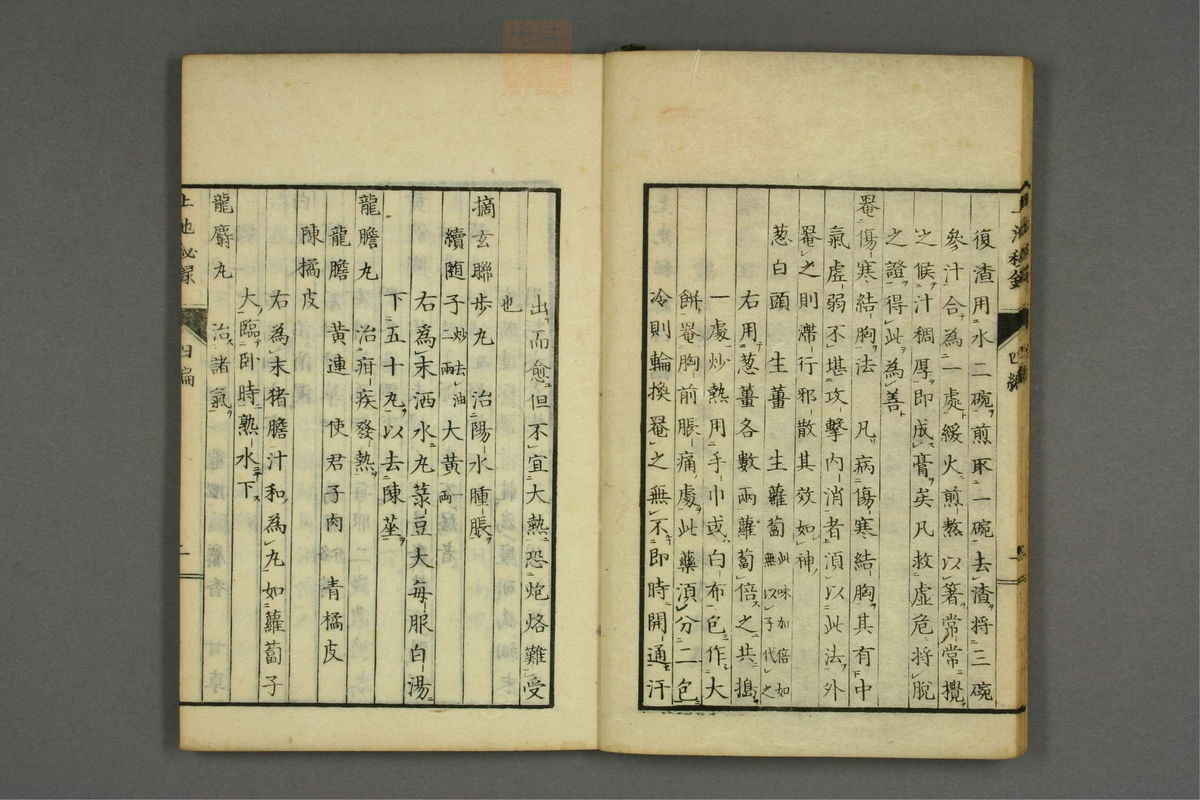 復渣用水二碗煎取一碗去渣將三碗
參汁合為一處緩火煎熬以箸常常攪
之候汁稠厚即成膏矣凡救虛危將脫
之證得此為善
罨傷寒結胸法　凡病傷寒結胸其有中
氣虛弱不堪攻擊內消者須以此法外
罨之則滯行邪散其效如神
葱白頭　生薑　生蘿蔔此味加倍如無以子代之
右用葱薑各數兩蘿蔔倍之共搗
一處炒熱用手巾或白布包作大
餅罨胸前脹痛處此藥須分二包
冷則輪換罨之無不即時開通汗
出而愈但不宜大熱恐炮烙難受
也
摘玄聯步丸　治陽水腫脹
續随子二兩炒去油　大黃一兩
右為末洒水丸菉豆大每服白湯
下五十丸以去陳莝
龍膽丸　治疳疾發熱
龍膽　黃連　使君子肉　青橘皮
陳橘皮
右為末猪膽汁和為丸如蘿蔔子
大臨卧時熟水下
龍麝丸　治諸氣
上池秘録　四編